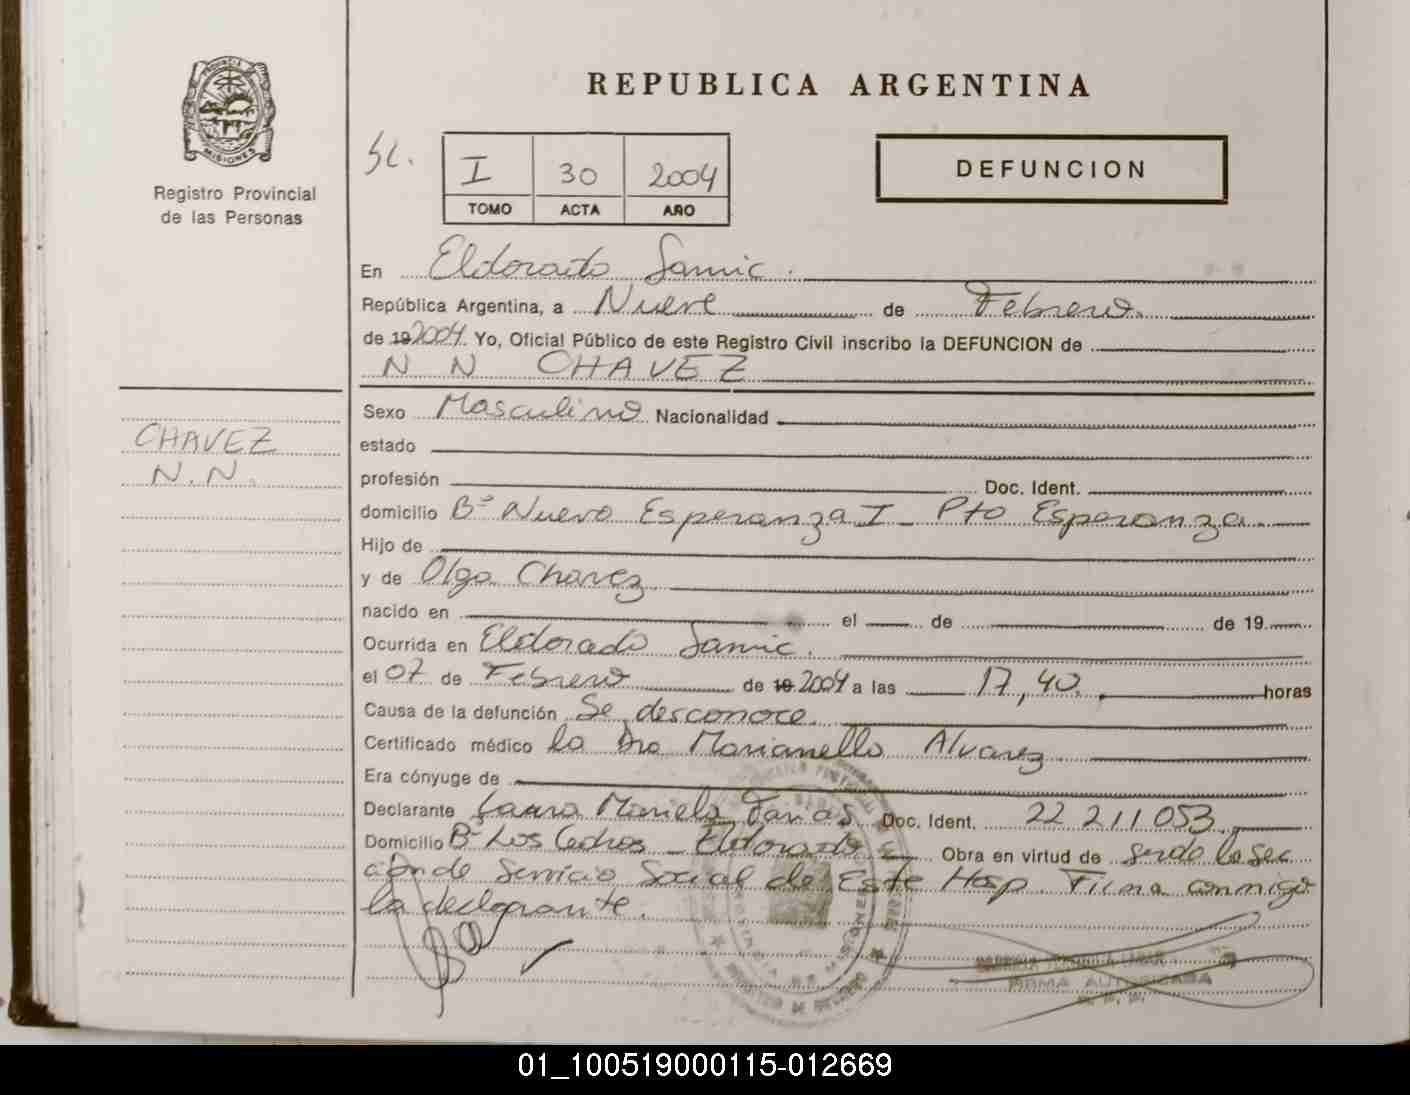 PROVINCIA
MISIONES
Registro Provincial
de las Personas
REPUBLICA ARGENTINA
Sc. I 30 2004
TOMO ACTA AÑO
DEFUNCION
En Eldorado Samic.
República Argentina, a Nueve de Febrero.
de 192004. Yo, Oficial Público de este Registro Civil inscribo la DEFUNCION de
N N CHAVEZ
CHAVEZ
N.N.
Sexo Masculino Nacionalidad
estado
profesión Doc. Ident.
domicilio Bº Nuevo Esperanza I - Pto Esperanza.
Hijo de
y de Olga Chavez
nacido en el de de 19
Ocurrida en Eldorado Samic.
el 07 de Febrero de 19 2004 a las 17,40. horas
Causa de la defunción Se desconoce.
Certificado médico la Dra Marianella Alvarez
Era cónyuge de
Declarante Laura Mariela Farias Doc. Ident. 22 211 053
Domicilio Bº Los Cedros - Eldorado Obra en virtud de serdo la Sec
de Servicio Social de Este Hosp. Firma conmigo
la declarante.
FIRMA AUTORIZADA
01_100519000115-012669